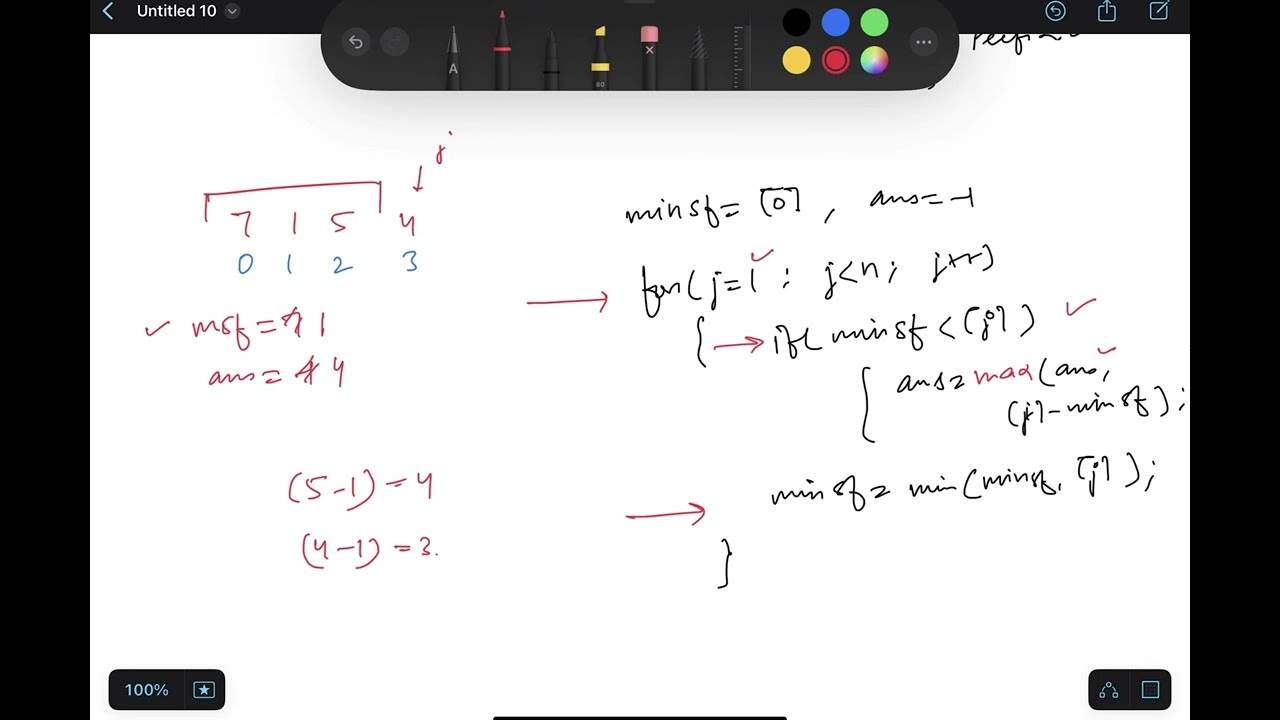 Untitled 10
A
80
j
7 1 5 4
0 1 2 3
msf = 7 1
ans = 4
(5-1) = 4
(4-1) = 3.
minsf = [0], ans = -1
for(j=1; j<n; j++)
{ if( minsf < [j] )
{ ans = max(ans,
[j] - minsf);
minsf = min(minsf, [j]);
}
100%